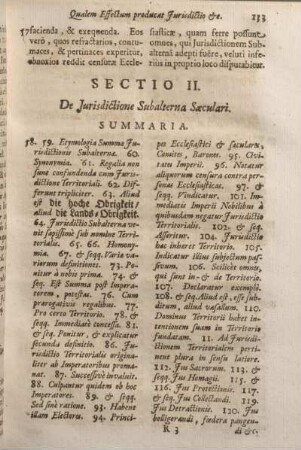 Qualem Effectum producat Jurisdictio &c. 133
facienda, & exequenda. Eos
verò, quos refractarios, contu-
maces, & pertinaces experitur,
obnoxios reddit censuræ Eccle-
siasticæ, quam ferre possunt
omnes, qui Jurisdictionem Sub-
alternâ adepti fuêre, veluti infe-
rius in proprio loco disputabitur.
SECTIO II.
De Jurisdictione Subalterna Sæculari.
SUMMARIA.
58. 59. Etymologia Summæ Ju-
risdictionis Subalternæ. 60.
Synonymia. 61. Regalia non
sunt confundenda cum Juris-
dictione Territoriali. 62. Dif-
ferunt tripliciter. 63. Aliud
est die hoche Obrigkeit /
aliud die Lands-Obrigkeit.
64. Jurisdictio Subalterna ve-
nit sæpissimè sub nomine Terri-
torialis. 65. 66. Homony-
mia. 67. & seqq. Varia va-
riorum definitiones. 73. Po-
nitur a nobis prima. 74. &
seq. Est Summa post Impera-
torem potestas. 76. Cum
prærogativis regalibus. 77.
Pro certo Territorio. 78. &
seqq. Immediatè concessa. 81.
& seq. Ponitur, & explicatur
secunda definitio. 83. Ju-
risdictio Territorialis origina-
liter ab Imperatoribus proma-
nat. 87. Successivè invaluit.
88. Culpantur quidem eb hoc
Imperatores. 89. & seqq.
Sed sinè ratione. 93. Habent
illam Electores. 94. Princi-
pes Ecclesiastici & sæculares,
Comites, Barones. 95. Civi-
tates Imperii. 96. Negatur
aliquorum censura contra per-
sonas Ecclesiasticas. 97. &
seqq. Vindicatur. 101. Im-
mediatis Imperii Nobilibus à
quibusdam negatur Jurisdictio
Territorialis. 102. & seqq.
asseritur. 104. Jurisdictio
hæc inhæret Territorio. 105.
Indicatur illius subjectum pas-
sivum. 106. Scilicet omnes,
qui sunt in- & de Territorio.
107. Declaratur exemplô.
108. & seq. Aliud est, esse sub-
ditum, aliud vasallum. 110.
Dominus Territorii habet in-
tentionem suam in Territorio
fundatam. 11. Ad Jurisdi-
ctionem Territorialem perti-
nent plura in sensu latiore.
112. Jus Sacrorum. 113. &
seq. Jus Homagii. 115. &
seq. Jus Protectionis. 117. &
seq. Jus Collectandi. 119.
Jus Detractionis. 120. Jus
belligerandi, fœdera pangen-
K 3 di &c.